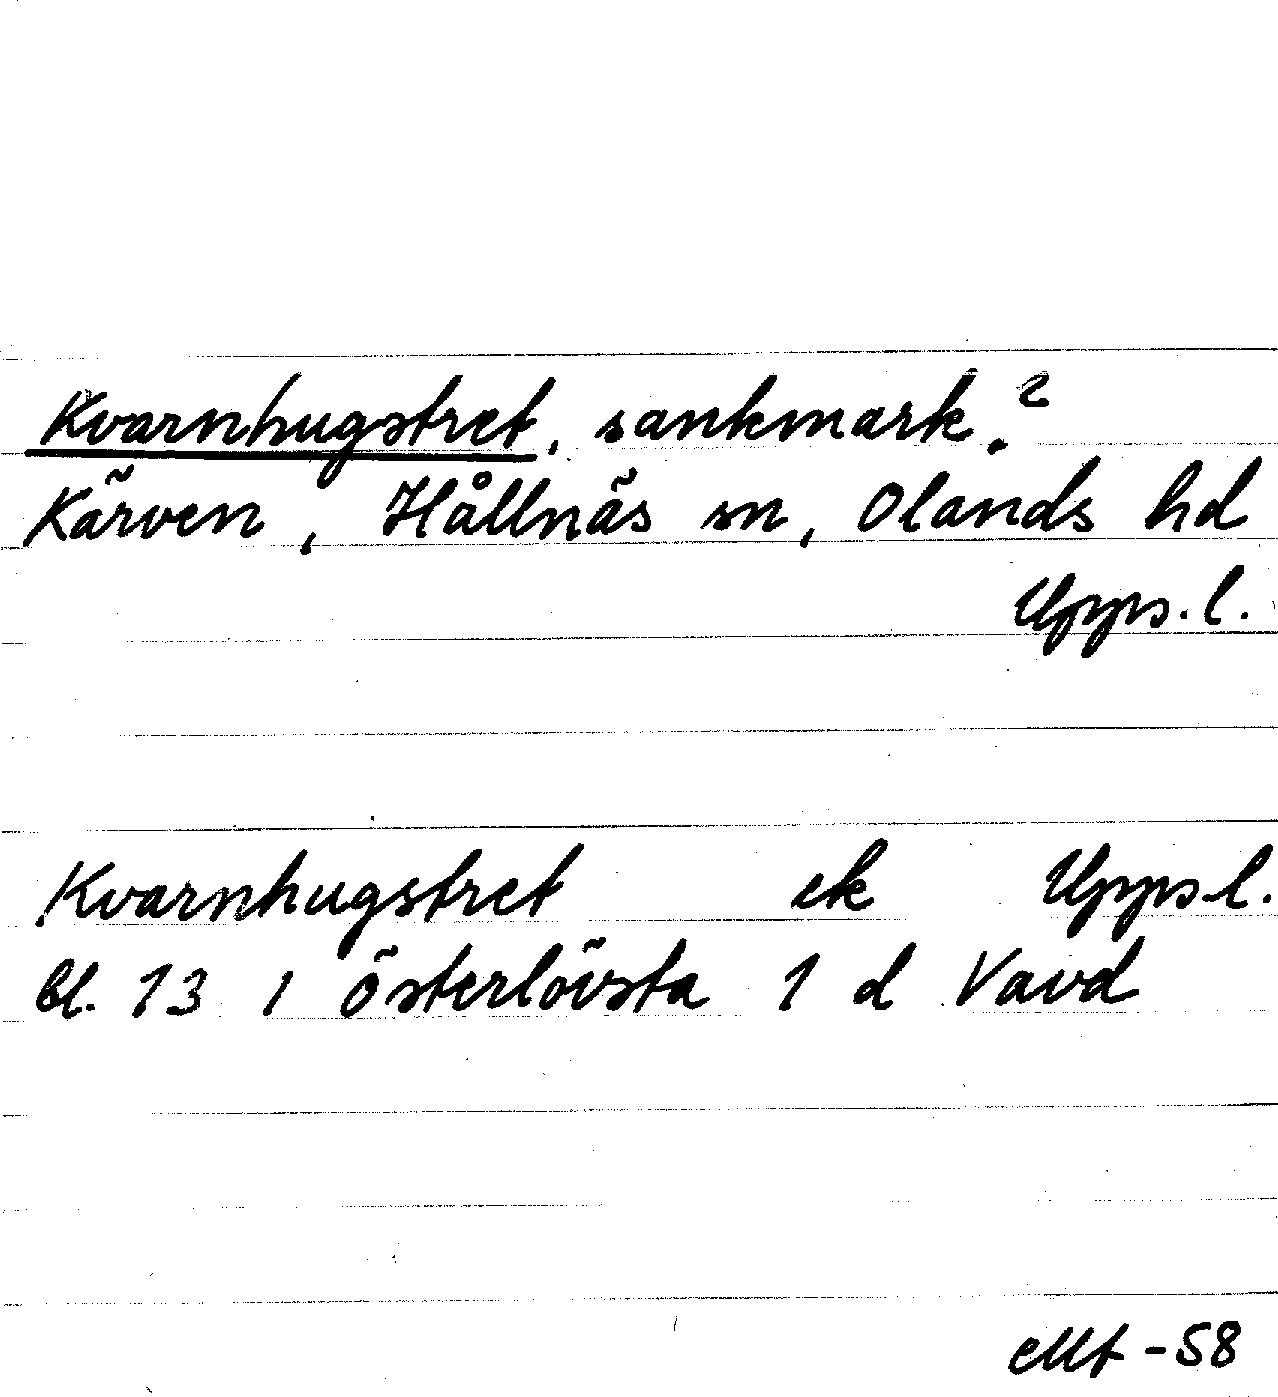 Kvarnhugstret, sankmark?
Kärven, Hållnäs sn, Olands hd
Upps. l.
Kvarnhugstret ek Upps. l.
bl. 13 1 Österlövsta 1 d Vavd